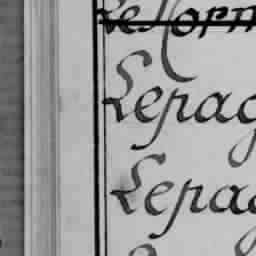 Le Norm
Lepag
Lepag